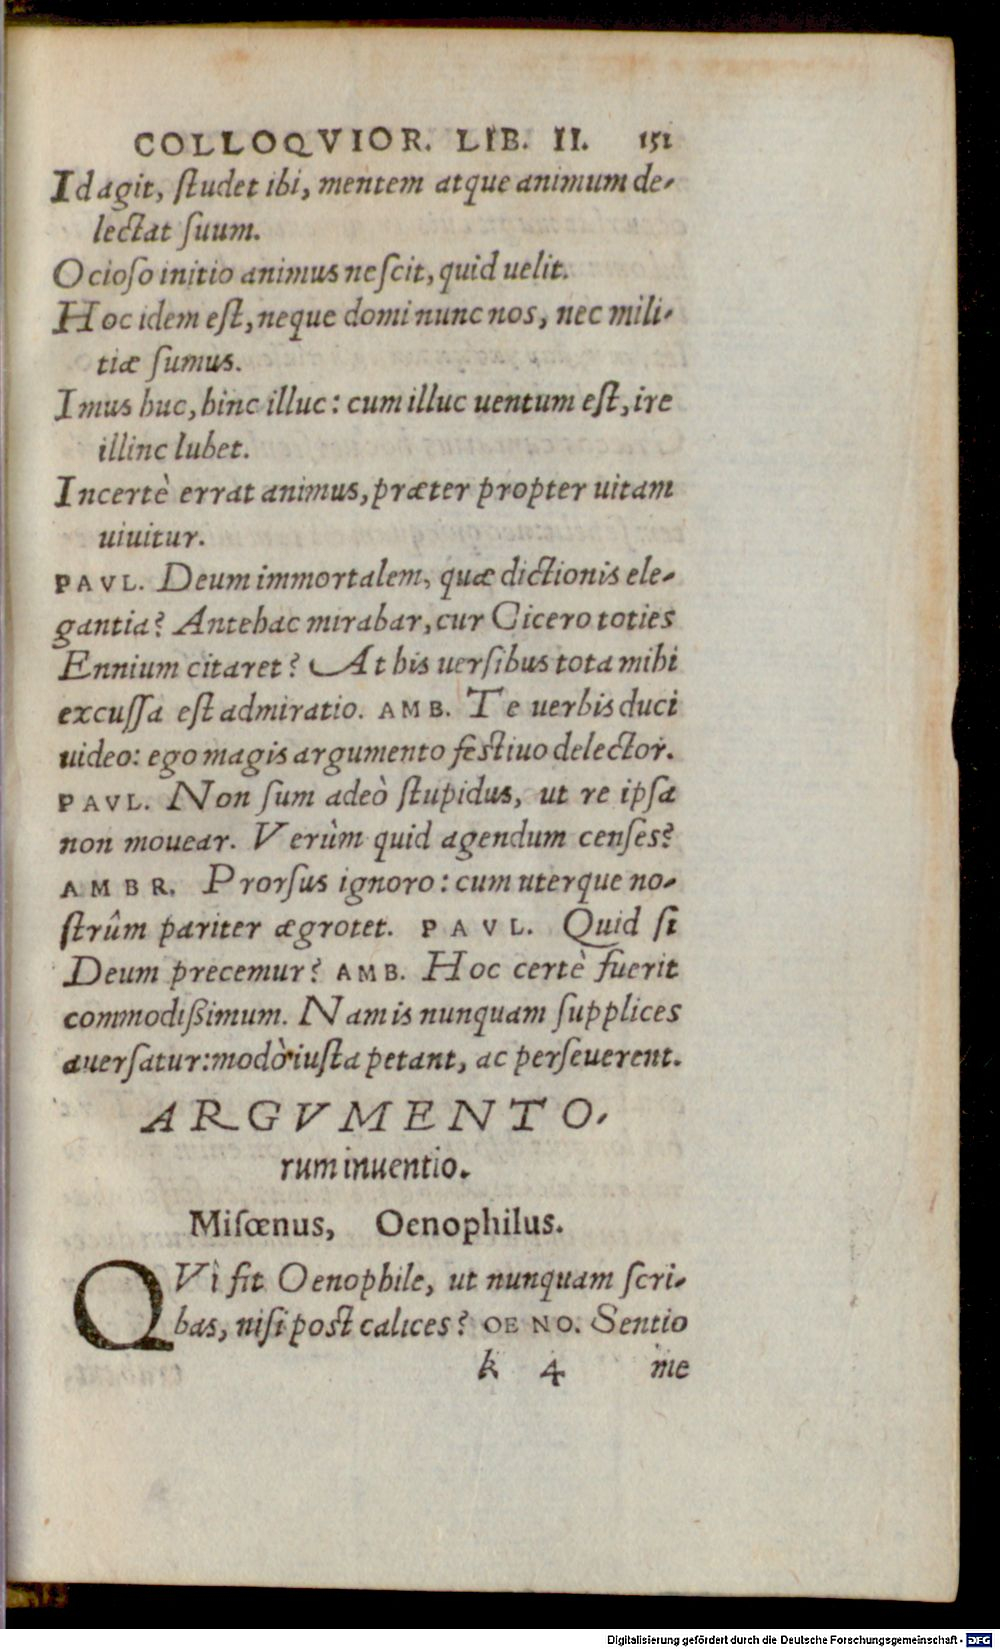 COLLOQVIOR. LIB. II. 151
Id agit, ſtudet ibi, mentem atque animum de-
lectat ſuum.
Ocioſo initio animus neſcit, quid uelit.
Hoc idem eſt, neque domi nunc nos, nec mili-
tiæ ſumus.
Imus huc, hinc illuc: cum illuc uentum eſt, ire
illinc lubet.
Incertè errat animus, præter propter uitam
uiuitur.
PAVL. Deum immortalem, quæ dictionis ele-
gantia? Antehac mirabar, cur Cicero toties
Ennium citaret? At his uerſibus tota mihi
excuſſa eſt admiratio. AMB. Te uerbis duci
uideo: ego magis argumento feſtiuo delector.
PAVL. Non ſum adeò ſtupidus, ut re ipſa
non mouear. Verùm quid agendum cenſes?
AMBR. Prorſus ignoro: cum uterque no-
ſtrûm pariter ægrotet. PAVL. Quid ſi
Deum precemur? AMB. Hoc certè fuerit
commodiſsimum. Nam is nunquam ſupplices
auerſatur: modò iuſta petant, ac perſeuerent.
ARGVMENTO-
rum inuentio.
Miſœnus, Oenophilus.
QVì fit Oenophile, ut nunquam ſcri-
bas, niſi poſt calices? OENO. Sentio
k 4 me
Digitalisierung gefördert durch die Deutsche Forschungsgemeinschaft - DFG